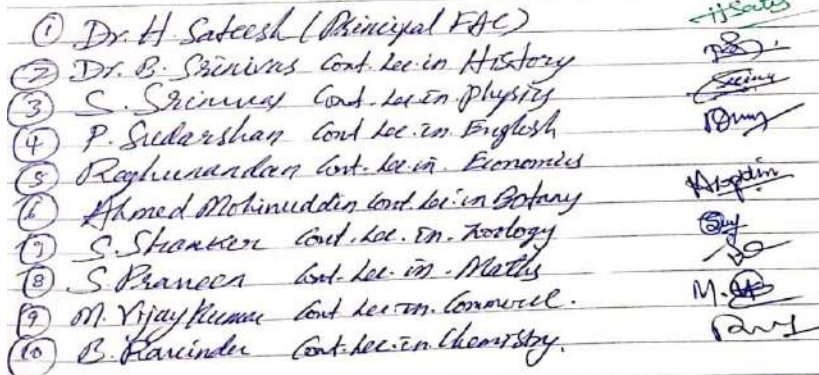 ① Dr. H. Sateesh (Principal FAC)
② Dr. B. Srinivas Cont. Lec. in History
③ S. Srinivas Cont. Lec. in Physics
④ P. Sudarshan Cont Lec. in English
⑤ Raghunandan Cont. Lec. in. Economics
⑥ Ahmed Mohinuddin Cont. Lec. in Botany
⑦ S. Shanker Cont. Lec. in. Zoology
⑧ S. Praveen Cont. Lec. in. Maths
⑨ M. Vijay Kumar Cont Lec in. Commerce.
⑩ B. Ravinder Cont. Lec. in Chemistry.